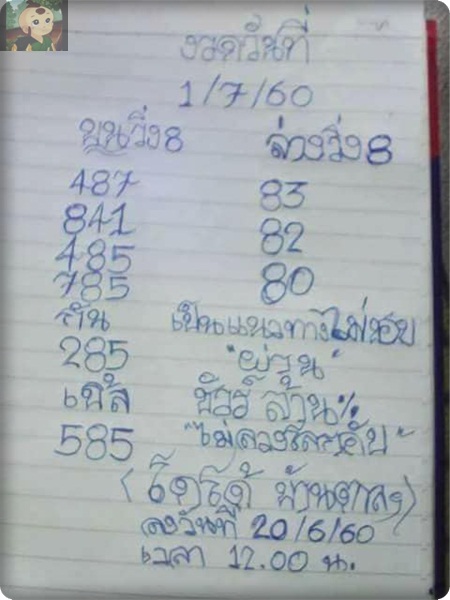 งวดวันที่
1/7/60
บนวิ่ง8 ล่างวิ่ง8
487 83
841 82
485
785 80
กัน เป็นแนวทางไม่ชอบ
285 "ผ่าน"
เบิ้ล ชัวร์ ล้าน%
585 "ไม่ลวงใครครับ"
บ้าน
ลงวันที่ 20/6/60
เวลา 12.00 น.